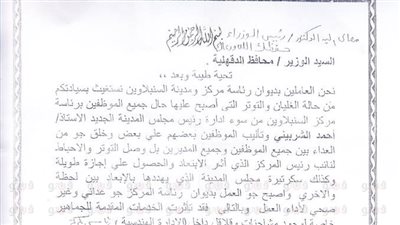 معالي السيد الدكتور / رئيس الوزراء
بسم الله الرحمن الرحيم
السيد الوزير / محافظ الدقهلية
تحية طيبة وبعد ,,
نحن العاملين بديوان رئاسة مركز ومدينة السنبلاوين نستغيث بسيادتكم
من حالة الغليان والتوتر التى أصبح عليها حال جميع الموظفين برئاسة
مركز السنبلاوين من سوء ادارة رئيس مجلس المدينة الجديد الاستاذ/
احمد الشربيني وتأنيب الموظفين بعضهم علي بعض وخلق جو من
العداء بين جميع الموظفين وجميع المديرين بل وصل التوتر والاحباط
لنائب رئيس المركز الذي أثر الابتعاد والحصول علي إجازة طويلة
وكذلك سكرتيرة مجلس المدينة الذي يهددها بالإبعاد بين لحظة
والأخري وأصبح جو العمل بديوان رئاسة المركز جو عدائي وغير
صحي لأداء العمل وبالتالي فقد تأثرت الخدمات المقدمة للجماهير
خاصة لوجود مشاحنات وقلاقل داخل (الادارة الهندسية)